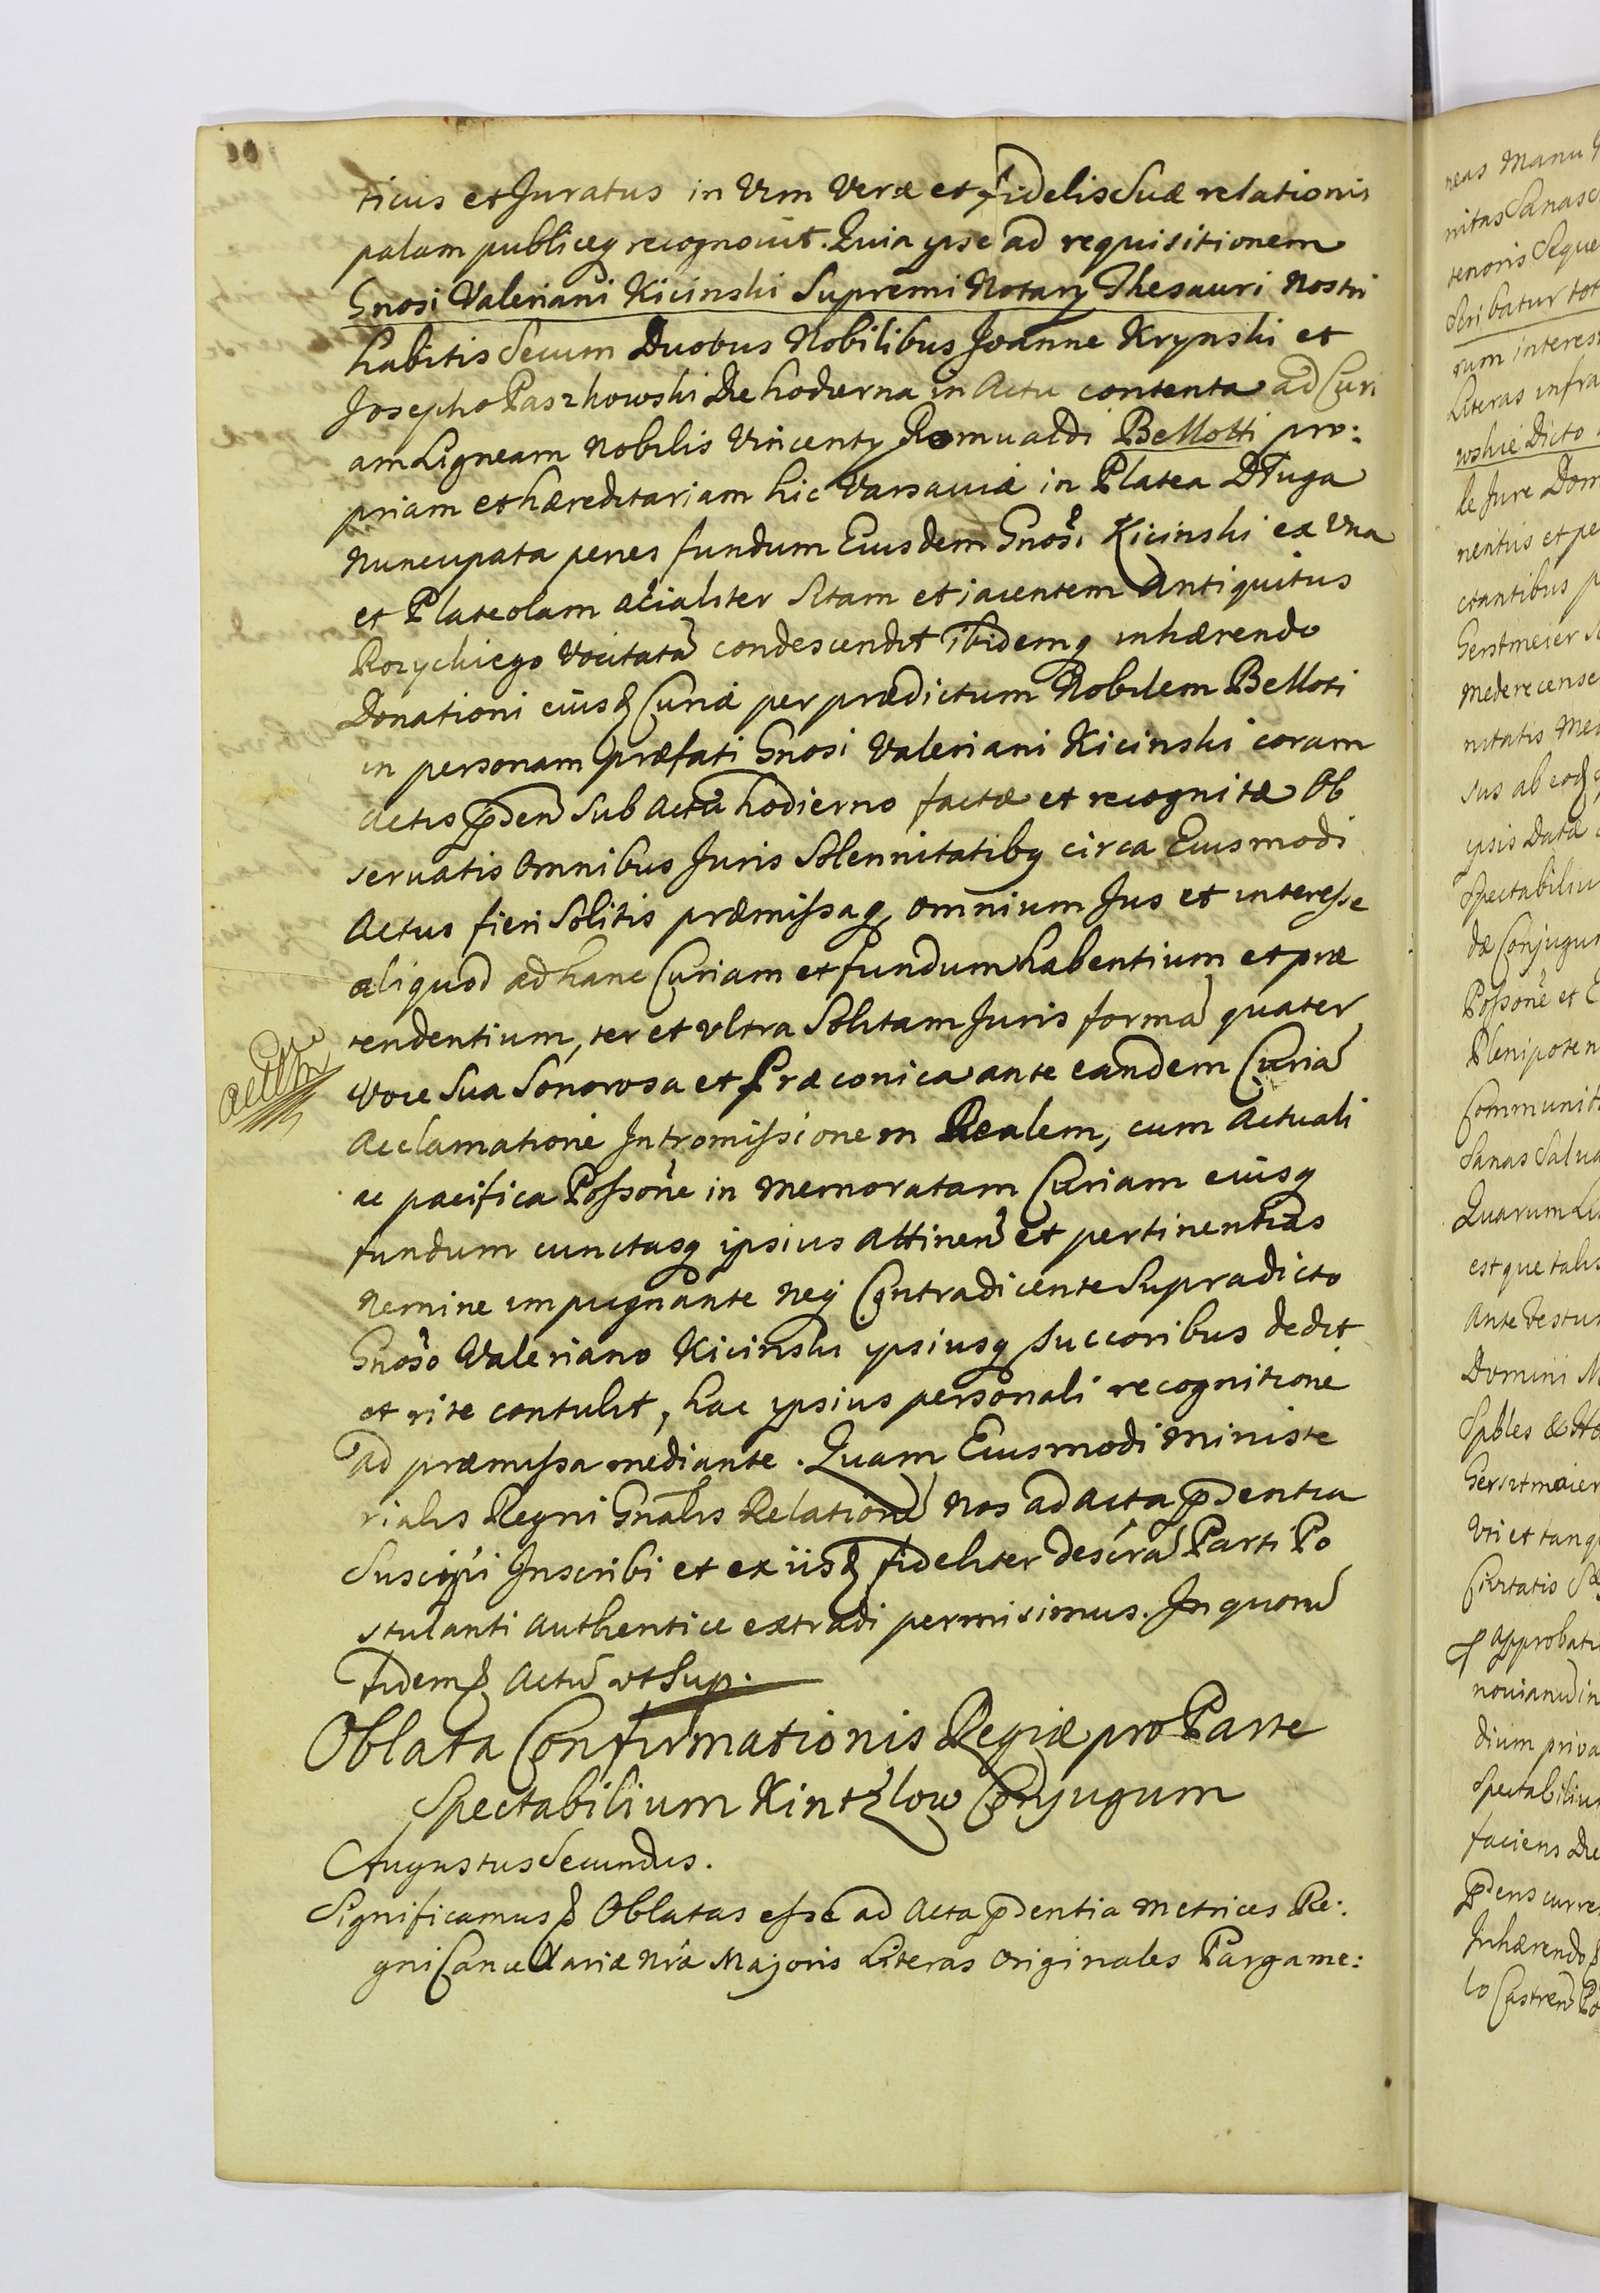 ticus et Juratus in Vim Veræ et fidelis Suæ relationis
palam publiceq recognovit. Quia ipse ad requisitionem
Gnosi Valeriani Kicinski Supremi Notarÿ Thesauri Nostri
habitis Secum Duobus Nobilibus Joanne Krynski et
Josepho Paszkowski Die hodierna in Actu contenta ad Curi
am Ligneam Nobilis Vincentÿ Romualdi Bellotti pro:
priam et hæreditariam hic Varsaviæ in Platea Długa
Nuncupata penes fundum Eiusdem Gnosi Kicinski ex Una
et Plateolam acialiter Sitam et iacentem Antiquitus
Rozyckiego Vocitatā condescendit Ibidemq inhærendo
Donationi eiusd Curiæ per prædictum Nobilem Belloti
in personam præfati Gnosi Valeriani Kicinski coram
Actis pden Sub Actu hodierno factæ et recognitæ Ob
servatis Omnibus Juris Solennitatibq circa Eiusmodi
Actus fieri Solitis præmissaq omnium Jus et interesse
aliquod ad hanc Curiam et fundum habentium et præ
tendentium, ter et ultra Solitam Juris formā quater
Voce Sua Sonorosa et Præconica ante eandem Curiā
Acclamatione Intromissionem Realem, cum Actuali
ac pacifica Possone in Memoratam Curiam eiusq
fundum cunctasq ipsius Attinen et pertinentias
Nemine impugnante Neq Contradicente Supradicto
Gnoso Valeriano Kicinski ipsiusq Succoribus dedit
et rite contulit, hac ipsius personali recognitione
ad præmissa mediante. Quam Eiusmodi Ministe
rialis Regni Gnalis Relationē Nos ad Acta pdentia
Suscipi Inscribi et ex iisd fideliter descra Parti Po
stulanti Authentice extradi permisimus. In quorū
fidem Actū ut Sup.
Oblata Confirmationis Regiæ pro Parte
Spectabilium Kintzlow Conjugum
Augustus Secundus.
Significamus Oblatas esse ad Acta pdentia Metrices Re:
gni Cancellariæ Nræ Majoris Literas Originales Pargame:
neas Manu
Scribatur
Literas infra
le Jure Dom
Gerstmeier
ipsis Datæ
Spectabiliu
Plenipoten
Quarum
est que talis
Domini
Vti et tanq
Approbati
dium priva
faciens Die
Inhærendo